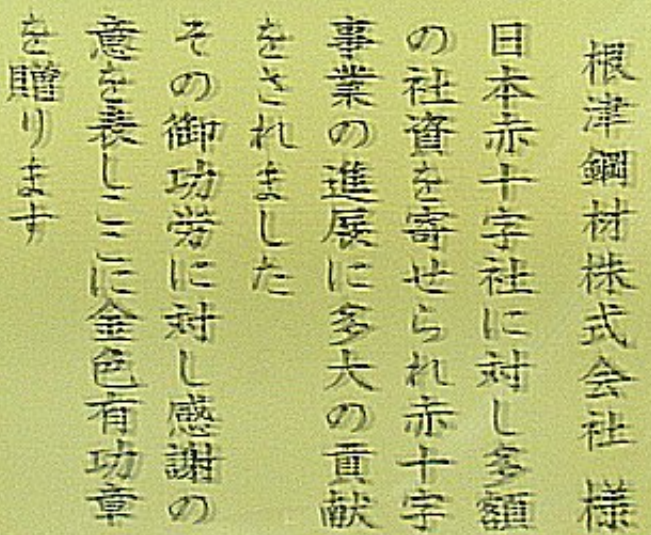 根津鋼材株式会社 様
日本赤十字社に対し多額
の社資を寄せられ赤十字
事業の進展に多大の貢献
をされました
その御功労に対し感謝の
意を表しここに金色有功章
を贈ります